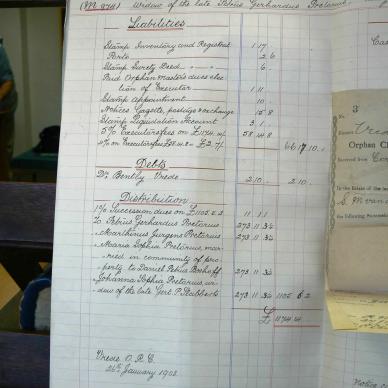 (M 971) Widow of the late Petrus Gerhardus Pretorius
Liabilities
Stamp Inventory and Registrat 1.17.
Ports 2.6
Stamp Surety Deed 6.
Paid Orphan master's dues elec
tion of Executor 1.11
Stamp Appointment 10.
Notices Gazette, postage & exchange 15.8
Stamp Liquidation Account 3.1.
5% Executors fees on £1174.4.
66 17.10.
Debts
Dr. Bently Vrede 2.10. 2.10.
Distribution
1% Succession dues on £1105.6.2 11.1.1
To Petrus Gerhardus Pretorius 273 11 3½
" Marthinus Jurgens Pretorius 273 11 3½
" Maria Sophia Pretorius, mar
ried in community of pro
perty to Daniel Petrus Boshoff 273 11 3½
" Johanna Sophia Pretorius wi
dow of the late Gert P. Stabberts 273 11 3½ 1105 6 2
£ 1174.4
Vrede O.R.C.
24th January 1903
3
Vrede
Orphan Ch
Received from
In the Estate of the la
S. M. van
the following Payments